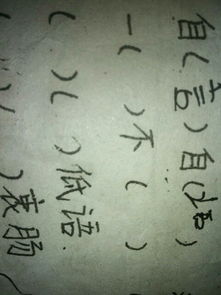 自(言)自(语)
一( )不( )
( )( )低语
( )( )衷肠